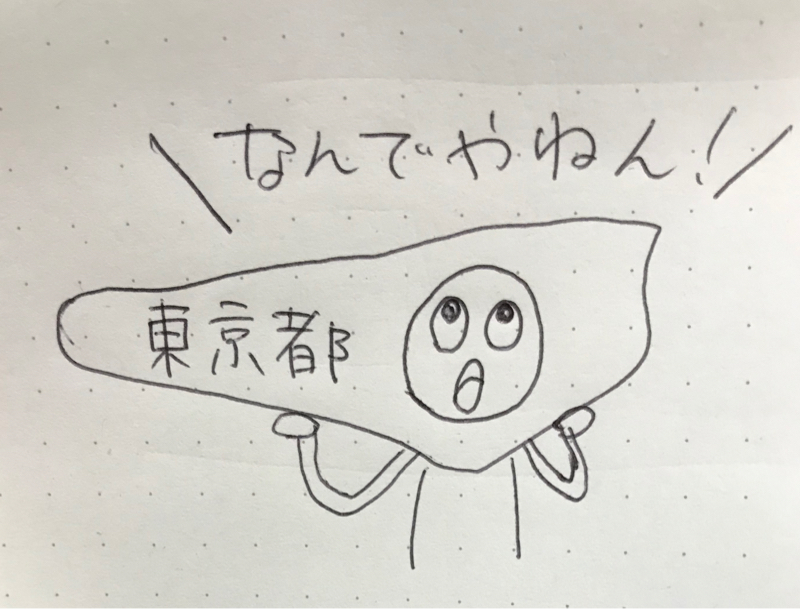 なんでやねん!
東京都